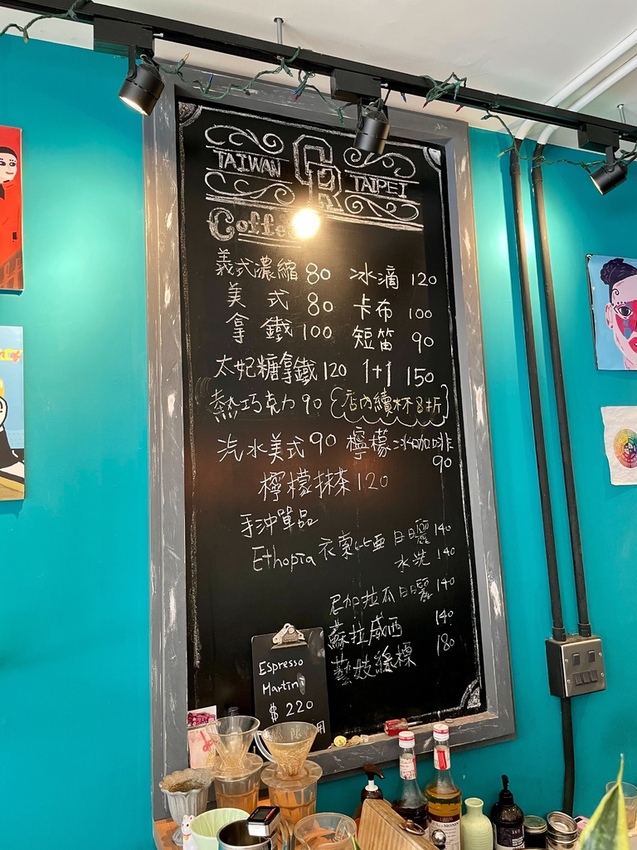 TAIWAN CR TAIPEI
Coffee
義式濃縮 80 冰滴 120
美式 80 卡布 100
拿鐵 100 短笛 90
太妃糖拿鐵 120 1+1 150
熱巧克力 90 店內續杯8折
汽水美式 90 檸檬冰咖啡 90
檸檬抹茶 120
手沖單品
Ethopia 衣索比亞 日曬 140
水洗 140
尼加拉瓜 日曬 140
蘇拉威西 140
藝妓綠標 180
Espresso
Martini
$ 220